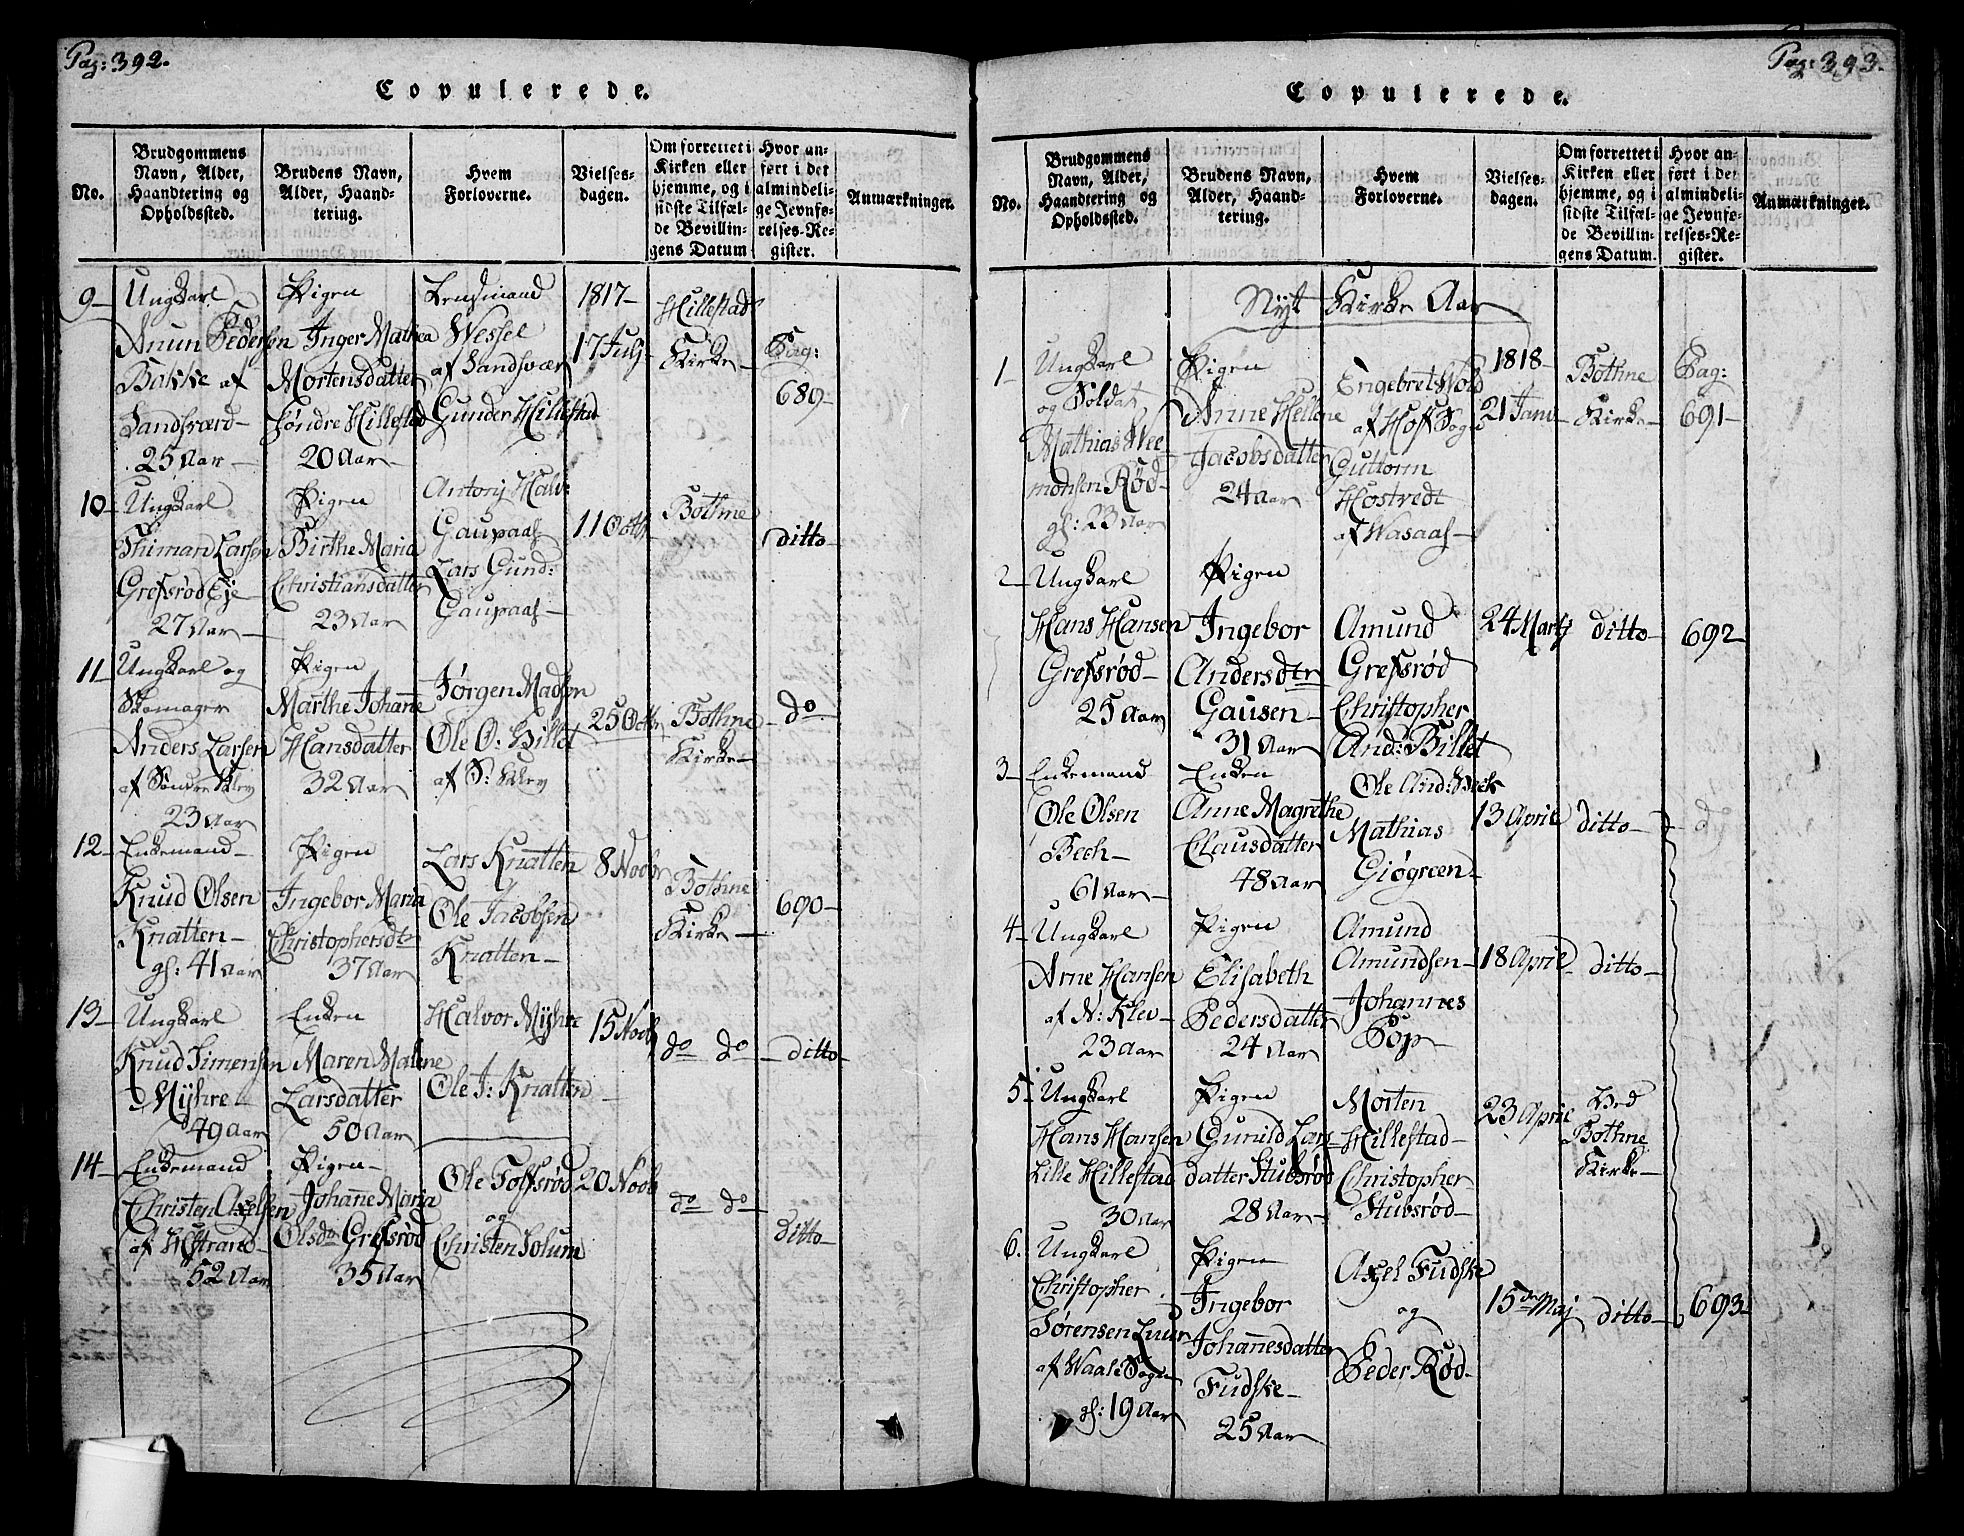 Pag: 392.
Copulerede.
No.
Brudgommens
Navn, Alder,
Haandtering og
Opholdssted.
Brudens Navn,
Alder, Haand-
tering.
Hvem
Forloverne.
Vielses-
dagen.
Om forrettet i
Kirken eller
hjemme, og i
sidste Tilfæl-
de Bevillin-
gens Datum
Hvor an-
ført i det
almindeli-
ge Jevnfø-
relses-Re-
gister.
Anmærkninger.
9
Ungkarl
Anun Pedersen
Bakke af
Sandsværd
25 Aar
Pigen
Inger Mathea
Mortensdatter
Søndre Hillestad
20 Aar
Lensmand
Wessel
af Sandsvær
Gunder Hillestad
1817
17 Julj
Hillestad
Kirke
Pag:
689
10
Ungkarl
Thiman Larsen
Grefsrød Eje
27 Aar
Pigen
Birthe Maria
Christiansdatter
23 Aar
Antonj Halv:
Gaupaas
Lars Gund:
Gaupaas
11 Octb
Bothne
ditto
11
Ungkarl og
Skomager
Anders Larsen
af Søndre Klev
23 Aar
Pigen
Marthe Johanne
Hansdatter
32 Aar
Jørgen Madsen
Ole O: Billet
af S: Klev
25 Octbr
Bothne
Kirke
do
12
Enkemand
Knud Olsen
Knatten
gl: 41 Aar
Pigen
Ingebor Maria
Christophersdtr
37 Aar
Lars Knatten
Ole Jacobsen
Knatten
8 Novbr
Bothne
Kirke
690
13
Ungkarl
Knud Simensen
Myhre
49 Aar
Enken
Maren Malene
Larsdatter
50 Aar
Halvor Myhre
Ole J: Knatten
15 Novb
do do
ditto
14
Enkemand
Christen Axelsen
af Hstrand
52 Aar
Pigen
Johanne Maria
Olsdr Grefsrød
35 Aar
Ole Tofsrød
og
Christen Solum
20 Novb
do do
ditto
Pag: 393.
Copulerede.
No.
Brudgommens
Navn, Alder,
Haandtering og
Opholdssted.
Brudens Navn,
Alder, Haand-
tering.
Hvem
Forloverne.
Vielses-
dagen.
Om forrettet i
Kirken eller
hjemme, og i
sidste Tilfæl-
de Bevillin-
gens Datum.
Hvor an-
ført i det
almindeli-
ge Jevnfø-
relses-Re-
gister.
Anmærkninger.
Nyt Kirke Aar
1
Ungkarl
og Soldat
Mathias Wee
monsen Rød
gl: 23 Aar
Pigen
Anne Hellene
Jacobsdatter
24 Aar
Engebret Wold
af Hof Sogn
Guttorm
Hostvedt
af Wasaas
1818
21 Janv
Bothne
Kirke
Pag:
691
2
Ungkarl
Hans Hansen
Grefsrød
25 Aar
Pigen
Ingebor
Andersdtr
Gausen
31 Aar
Amund
Grefsrød
Christopher
And: Billet
24 Martj
ditto
692
3
Enkemand
Ole Olsen
Bech
61 Aar
Enken
Anne Magrethe
Clausdatter
48 Aar
Ole And: Beck
Mathias
Giøgreen
13 April
ditto
d
4
Ungkarl
Arne Hansen
af N: Klev
23 Aar
Pigen
Elisabeth
Pedersdatter
24 Aar
Amund
Amundsen
Johannes
Sop
18 April
ditto
5
Ungkarl
Hans Hansen
Lille Hillestad
30 Aar
Pigen
Gunild Lars
datter Stubsrød
28 Aar
Morten
Hillestad
Christopher
Stubsrød
23 April
Ved
Bothne
Kirke
6.
Ungkarl
Christopher
Sørensen Luur
af Waale Sogn
gl: 19 Aar
Pigen
Ingebor
Johannesdatter
Fudske
25 Aar
Axel Fudske
og
Peder Rød
15de Maj
ditto
693